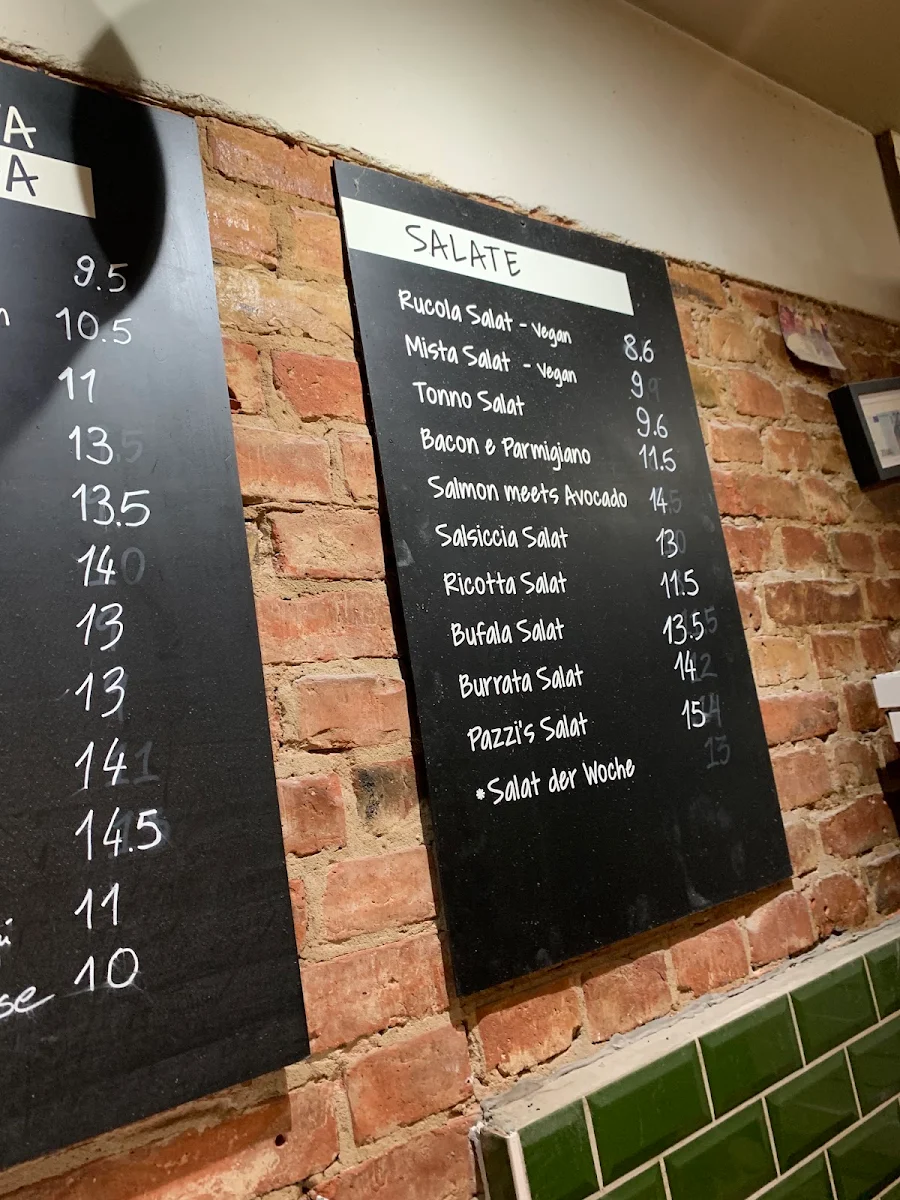 A
A
9.5
10.5
11
13
13.5
14
13
13
14
14.5
11
se 10
SALATE
Rucola Salat - Vegan 8.6
Mista Salat - Vegan 9
Tonno Salat 9.6
Bacon e Parmigiano 11.5
Salmon meets Avocado 14
Salsiccia Salat 13
Ricotta Salat 11.5
Bufala Salat 13.5
Burrata Salat 14
Pazzi's Salat 15
*Salat der Woche